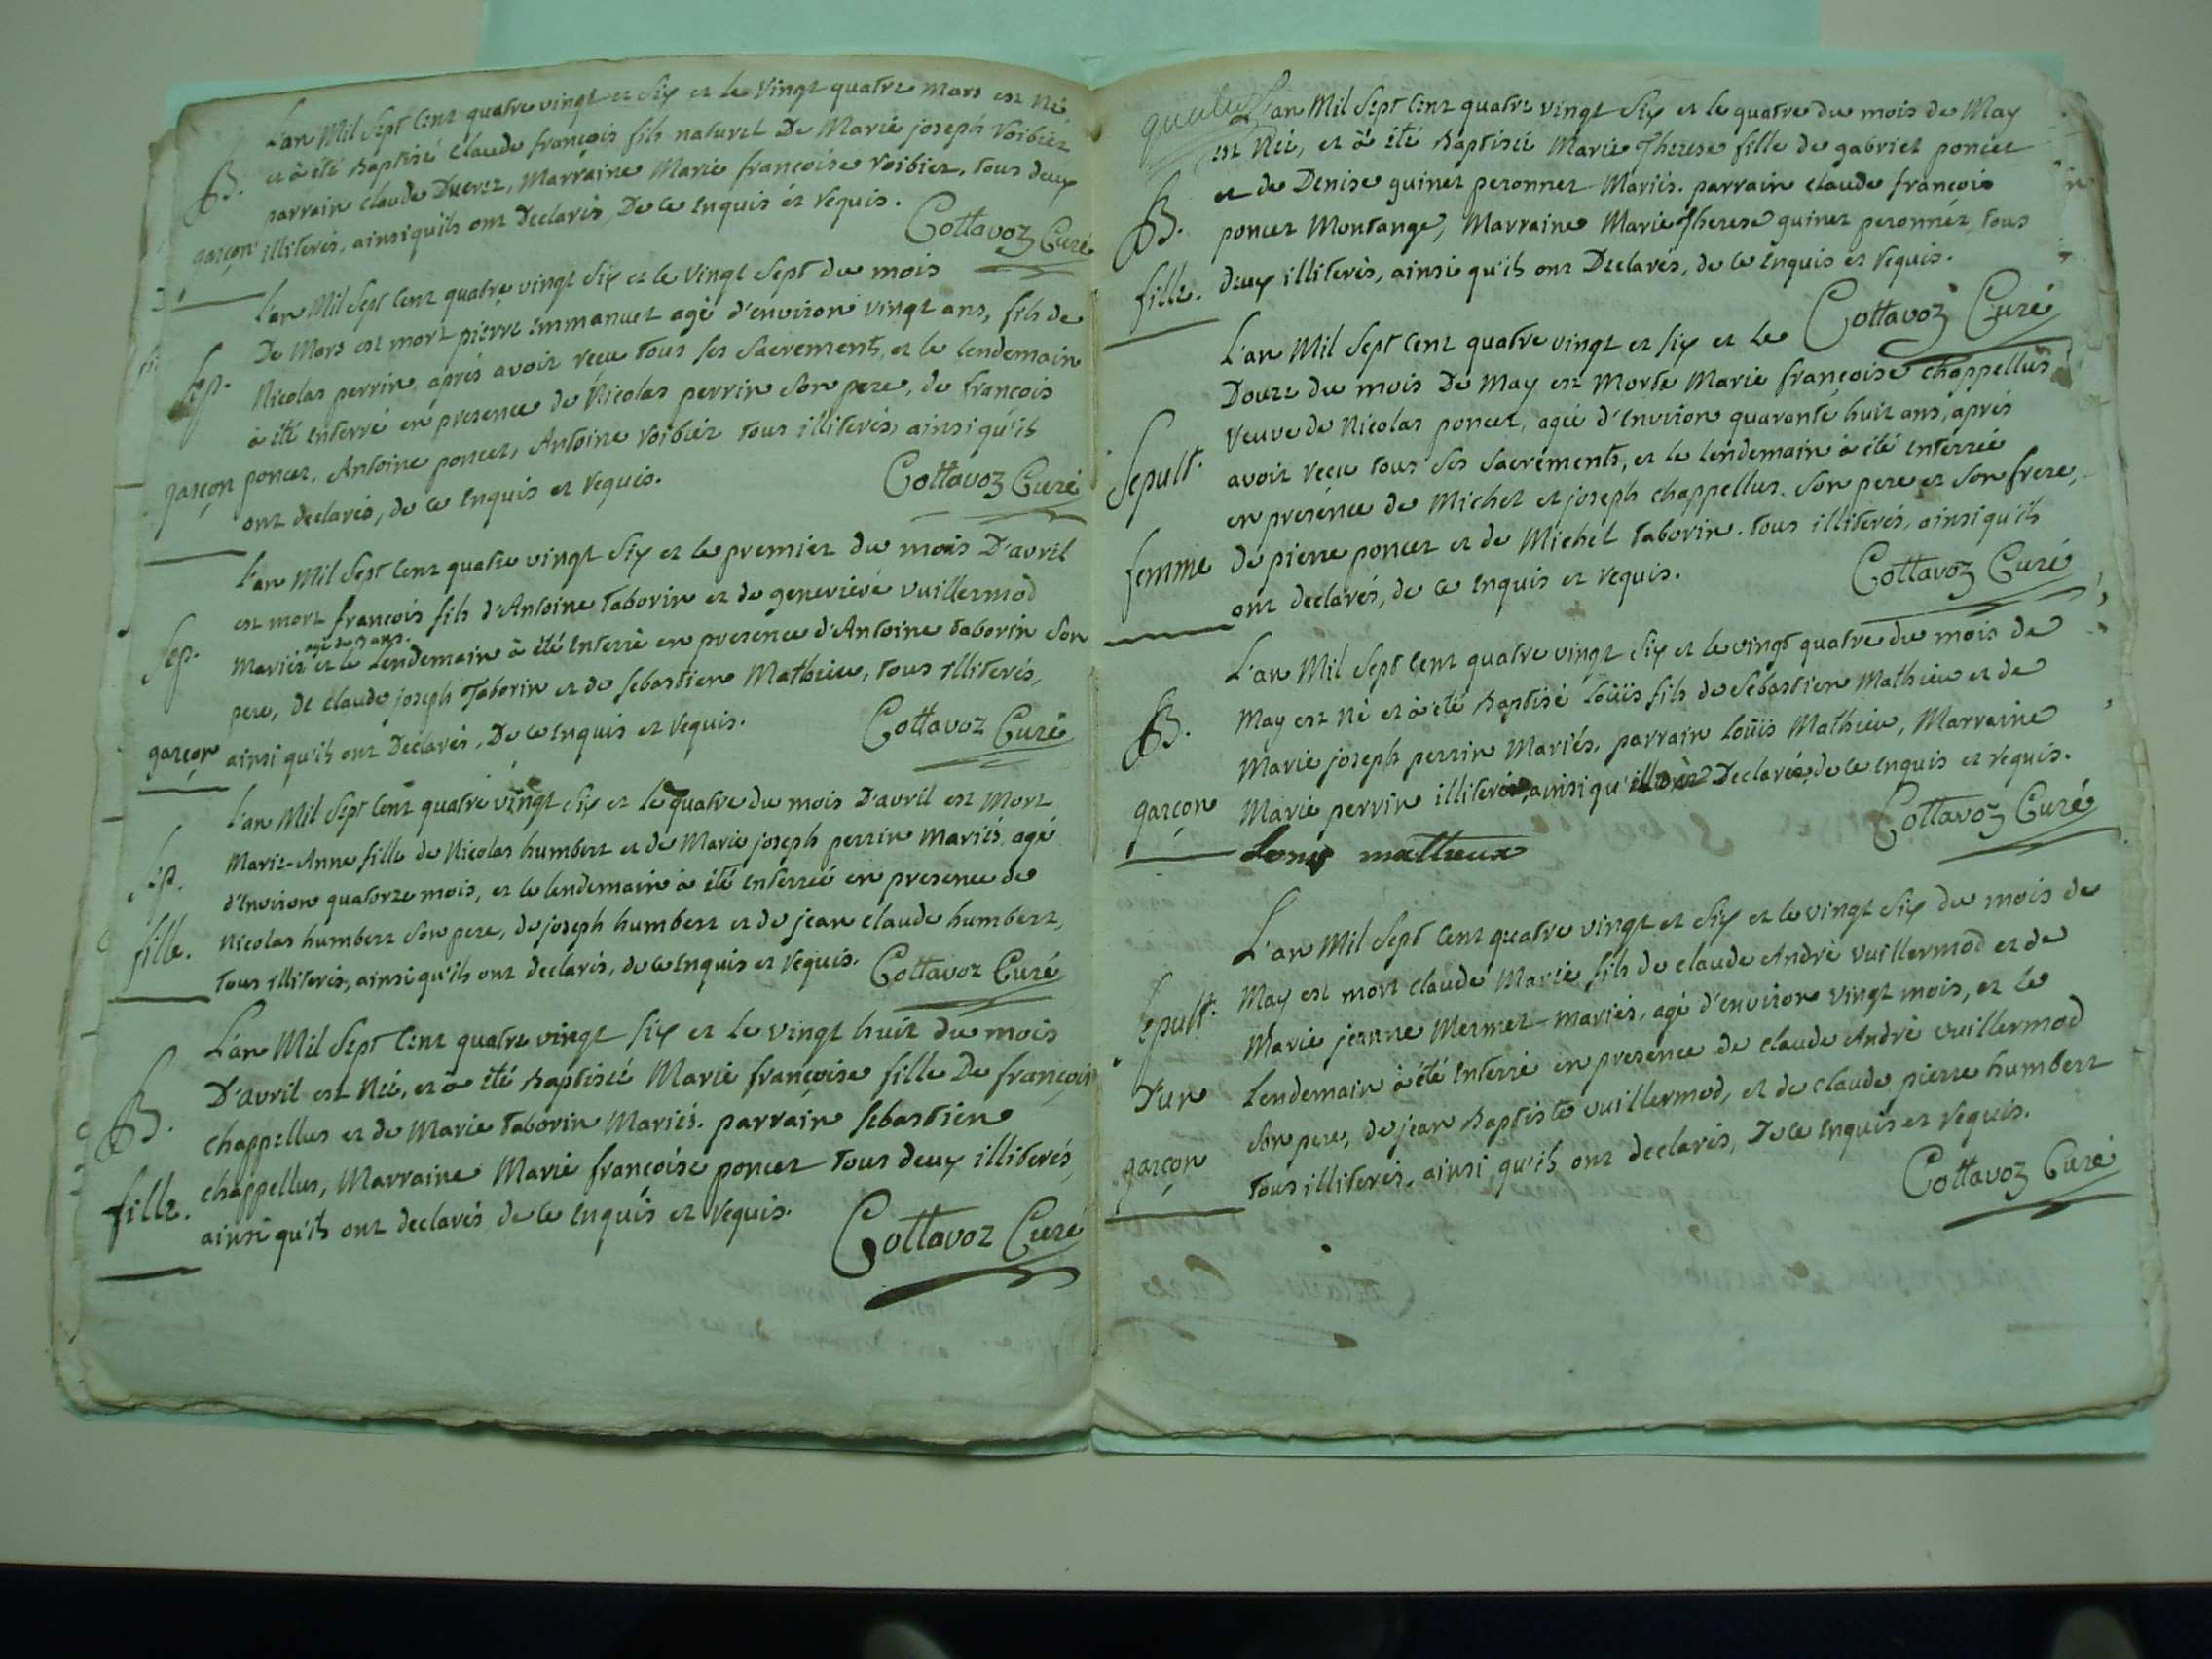 L'an Mil Sept Cent quatre vingt et Six et le Vingt quatre mars est Né,
B. et à été Baptisé Claude françois fils naturel De Marie joseph Voibier
parrain Claude Ducret, Marraine Marie françoise Voibier, tous deux
garçon illiterés, ainsi qu'ils ont Declarés De ce Enquis et Requis.
Cottavoz Curé
L'an Mil Sept Cent quatre vingt Six et le Vingt Sept du mois
De Mars est mort pierre Emmanuel agé d'environ vingt ans, fils de
Sep. Nicolas perrin, aprés avoir reçu tous ses Sacrements, et le lendemain
à été Enterré en presence de Nicolas perrin Son pere, de françois
garçon poncet, Antoine poncet, Antoine Voibier tous illiterés, ainsi qu'ils
ont declarés, de ce Enquis et Requis.
Cottavoz Curé
L'an Mil Sept Cent quatre vingt Six et le premier du mois D'avril
est mort françois fils d'Antoine Taborin et de genevieve Vuillermod
agé de 3 ans.
Sep. Mariés et le Lendemain à été Enterré en presence d'Antoine Taborin Son
pere, de Claude joseph Taborin et de Sebastien Mathieu, tous illiterés,
garçon ainsi qu'ils ont Declarés, De ce Enquis et Requis.
Cottavoz Curé
L'an Mil Sept Cent quatre vingt Six et le quatre du mois D'avril est Mort
Sep. Marie-Anne fille de Nicolas humbert et de Marie joseph perrin Mariés, agé
d'Environ quatorze mois, et le lendemain à été Enterreé en presence de
fille. Nicolas humbert Son pere, de joseph humbert et de jean claude humbert,
tous illiterés, ainsi qu'ils ont declarés, de ce Enquis et Requis.
Cottavoz Curé
L'an Mil Sept Cent quatre vingt Six et le vingt huit du mois
D'avril est Née, et à été Baptiseé Marie françoise fille De françois
B. chappellus et de Marie Taborin Mariés. parrain Sebastien
chappellus, Marraine Marie françoise poncet tous deux illiterés,
fille. ainsi qu'ils ont declarés de ce Enquis et Requis.
Cottavoz Curé
L'an Mil Sept Cent quatre vingt Six et le quatre du mois de May
est Née, et à été Baptiseé Marie Therese fille de gabriel poncet
B. et de Denise guinet peronnet Mariés. parrain claude françois
poncet Montange, Marraine Marie Therese guinet peronnet, tous
fille. deux illiterés, ainsi qu'ils ont Declarés, de ce Enquis et Requis.
Cottavoz Curé
L'an Mil Sept Cent quatre vingt et six et le
Douze du mois De May est Morte Marie françoise chappellus
veuve de Nicolas poncet, agée d'Environ quarante huit ans, aprés
Sepult. avoir reçu tous Ses Sacrements, et le lendemain à été Enterrée
en présence de Michel et joseph chappellus Son pere et Son frere,
femme de pierre poncet et de Michel Taborin. tous illiterés, ainsi qu'ils
ont declarés, de ce Enquis et Requis.
Cottavoz Curé
L'an Mil Sept Cent quatre vingt Six et le vingt quatre du mois de
B. May est Né et à été Baptisé Loüis fils de Sebastien Mathieu et de
Marie joseph perrin Mariés, parrain Loüis Mathieu, Marraine
garçon Marie perrin illiterée, ainsi qu'elle à Declaré, de ce Enquis et Requis.
Cottavoz Curé
Louis mathieux
L'an Mil Sept Cent quatre vingt et Six et le vingt Six du mois de
Sepult. May est mort claude Marie fils de claude André Vuillermod et de
Marie jeanne Mermet mariés, agé d'environ vingt mois, et le
D'un Lendemain à été Enterré en presence de claude André Vuillermod
Son pere, de jean Baptiste vuillermod, et de claude pierre humbert
garçon tous illiterés, ainsi qu'ils ont declarés, De ce Enquis et Requis.
Cottavoz Curé